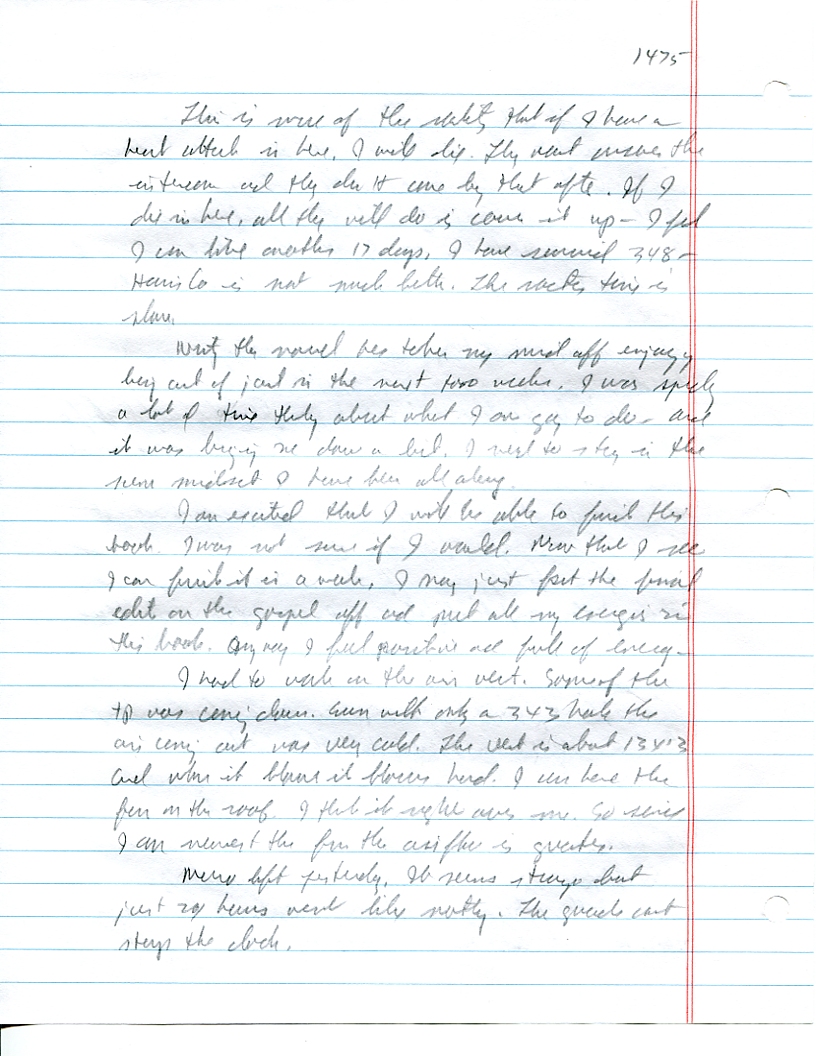 1475
This is more of the reality that if I have a
heart attack in here, I will die. They wont answer the
intercom and they don't come by that often. If I
die in here, all they will do is cover it up - I feel
I can live another 17 days, I have survived 348 -
is not much better. The time is
slow.
the novel has taken my mind off enjoying
being out of jail in the next two weeks. I was spending
a lot of time thinking about what I am going to do - and
it was bringing me down a bit. I need to stay in the
same mindset I have been all along.
I am excited that I will be able to finish this
book. I was not sure if I would. Now that I see
I can finish it in a week, I may just put the final
edit on the gospel off and put all my energies in
this book. Anyway I feel positive and full of energy.
I had to work on the air vent. Some of the
tp was coming down. Even with only a 3x3 hole the
air coming out was very cold. The vent is about 13x13
and when it blows it blows hard. I can hear the
fan on the roof. I think it right over me. So since
I am nearest the fan the airflow is greater.
left yesterday. It seems strange but
just 24 hours went like nothing. The guards cant
stop the clock.